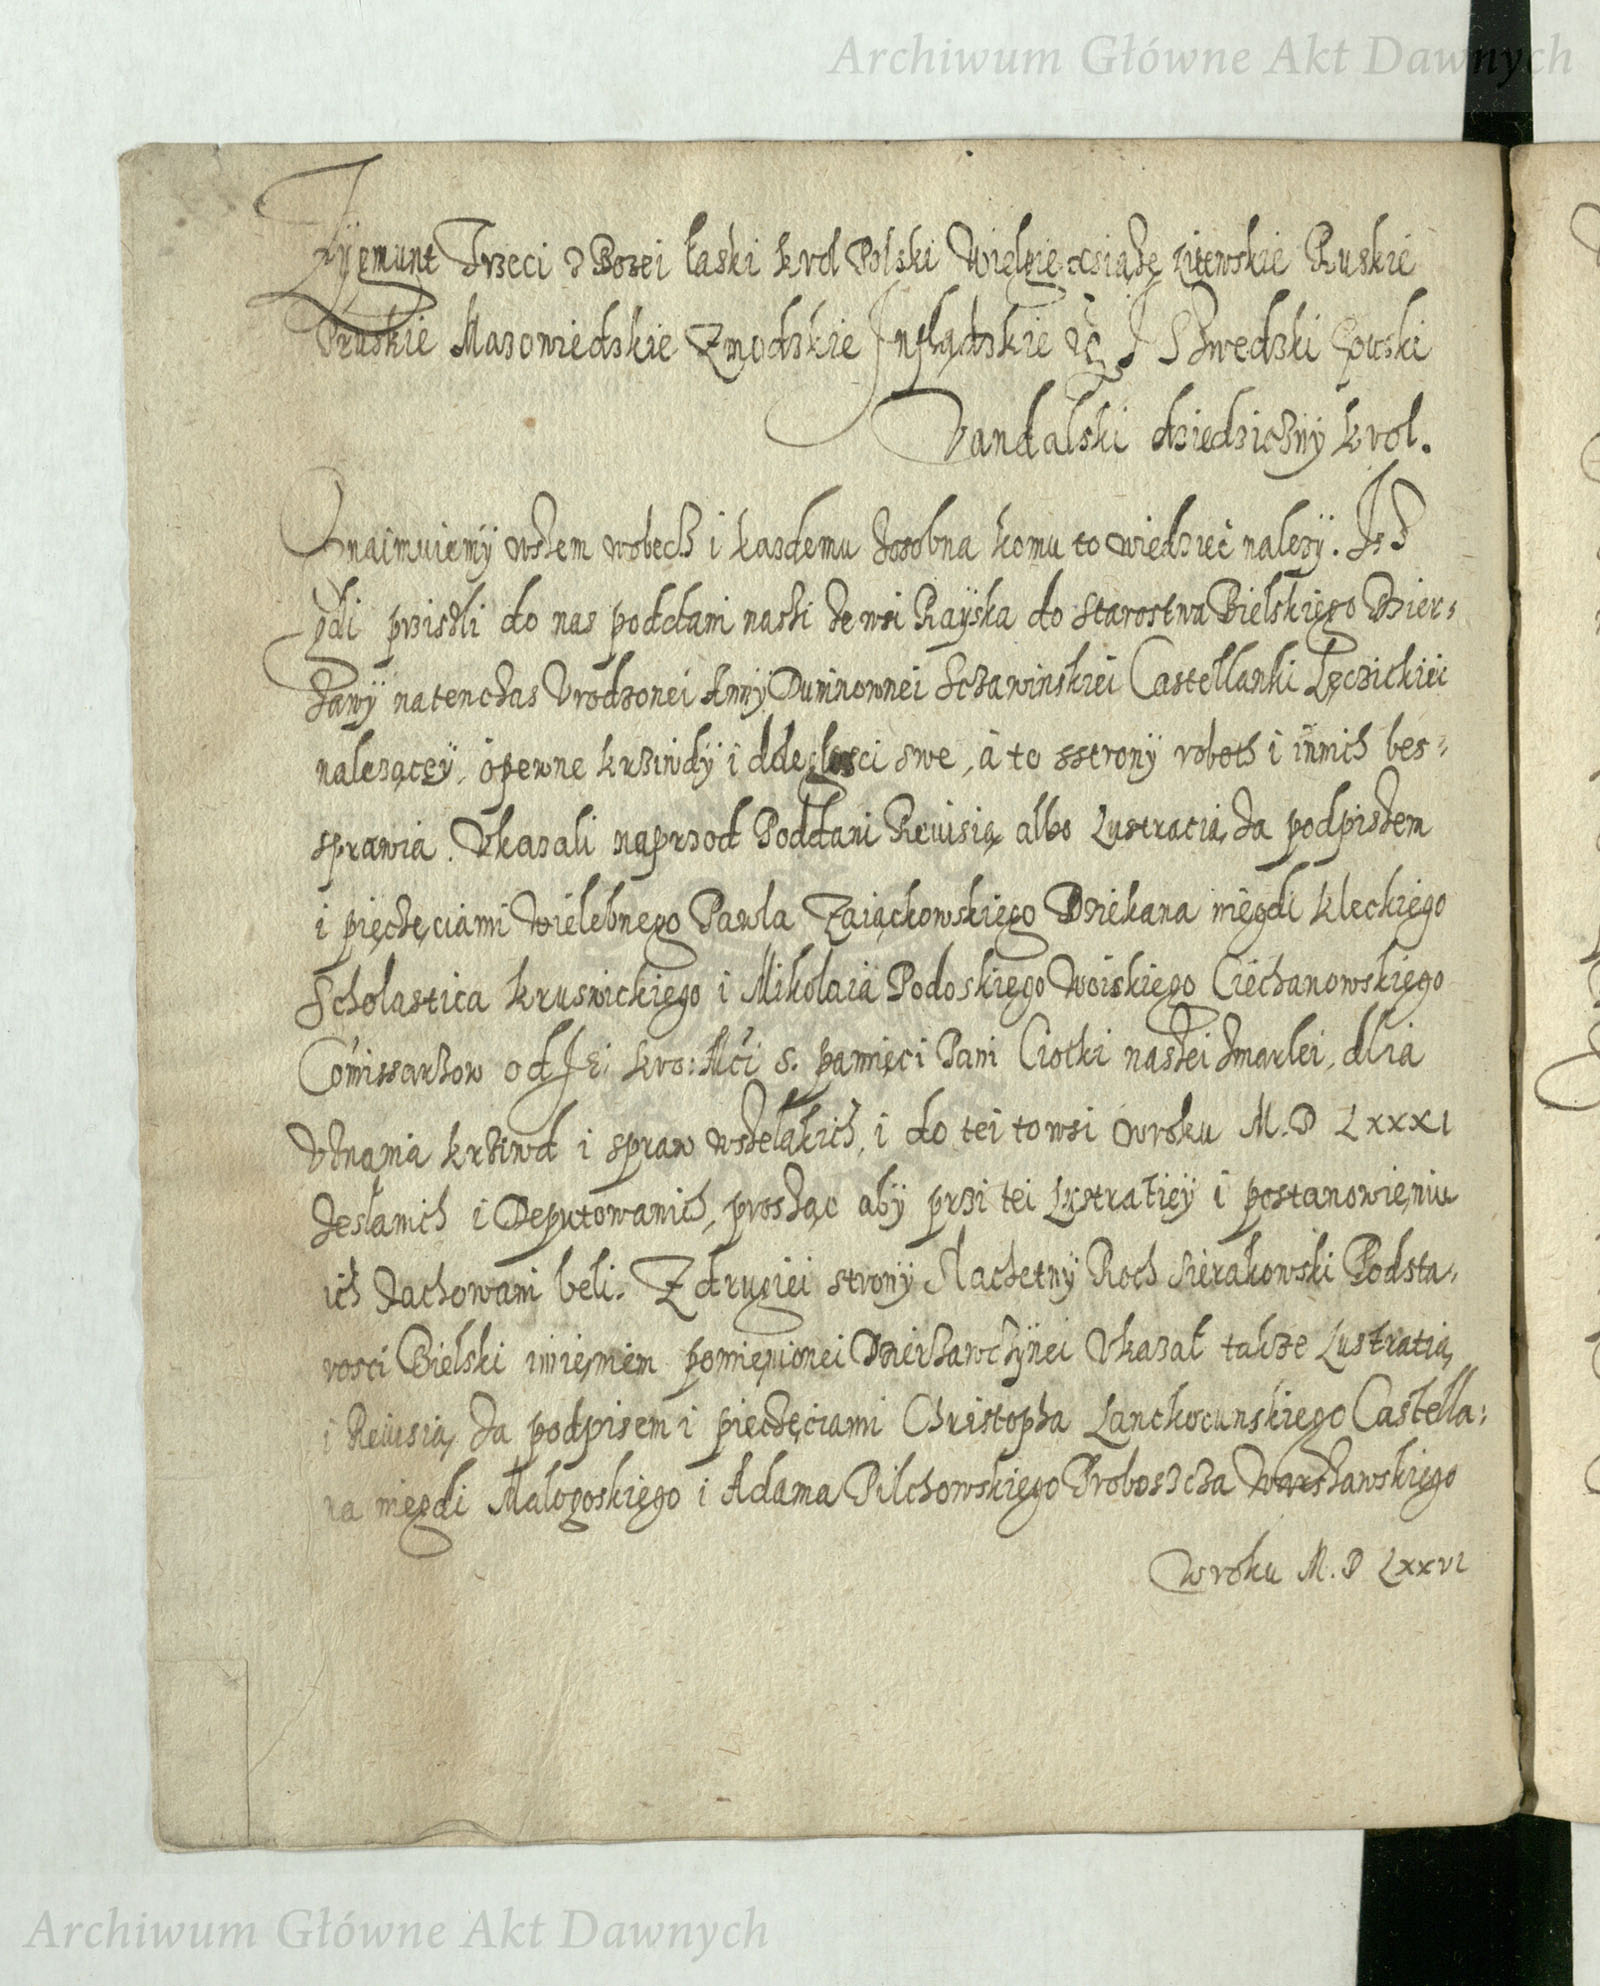 Archiwum Główne Akt Dawnych
Zÿgmunt Trzeci z Bozei łaski krol Polski Wielgie xsiąże Litewskie Ruskie
Pruskie Mazowiedzkie Zmodzkie Inflądzkie &c J Szwedzki Gotski
Vandalski dziedzicznÿ krol.
Oznaimuiemÿ wszem wobech i kazdemu zosobna komu to wiedzieć nalezÿ. Jz
gdi prziszli do nas poddani naszi ze wsi Raÿska do Starostwa Bielskiego Dzier-
zawÿ natenczas Vrodzonei Annÿ Duninownei Sczawinskiei Castellanki Lęczickiei
naleząceÿ, o pewne krziwdÿ i doległosci swe, a to zstronÿ roboth i innich bez-
sprawia. Vkazali naprzod Poddani Reuisią albo Lustracią za podpiszem
i pięczęciami Wielebnego Pawla Zaiączkowskiego Dziekana niegdi kleckiego
Scholastica kruswickiego i Mikolaia Podoskiego Woiskiego Ciechanowskiego
Comissarzow od Jei kro: Mci s. pamięci Pani Ciotki naszei zmarlei, dlia
Vznania krziwd i spraw wszelakich, i do tei to wsi w roku M.D LXXXI
zeslanich i Deputowanich, prosząc abÿ przi tei Lustratieÿ i postanowieniu
ich zachowani beli. Z drugiei stronÿ Slachetnÿ Roch Sierakowski Podsta-
rosci Bielski imieniem pomienionei Dzierzawczÿnei Vkazał takze Lustratią
i Reuisią, za podpisem i pieczęciami Christopha Lanckorunskiego Castella-
na niegdi Malogoskiego i Adama Pilchowskiego Proboszcza Warszawskiego
W roku M.D LXXVI
Archiwum Główne Akt Dawnych